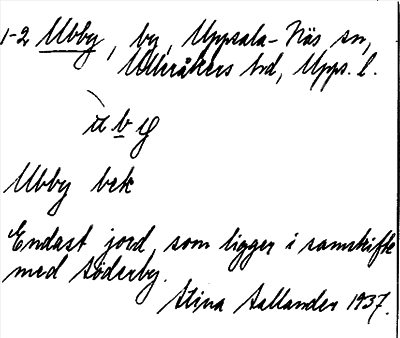 1-2 Ubby, by, Uppsala-Näs sn,
Ulleråkers hd, Upps. l.
Ubby bek
Endast jord, som ligger i samskifte
med Söderby.
Stina Sallander 1937.